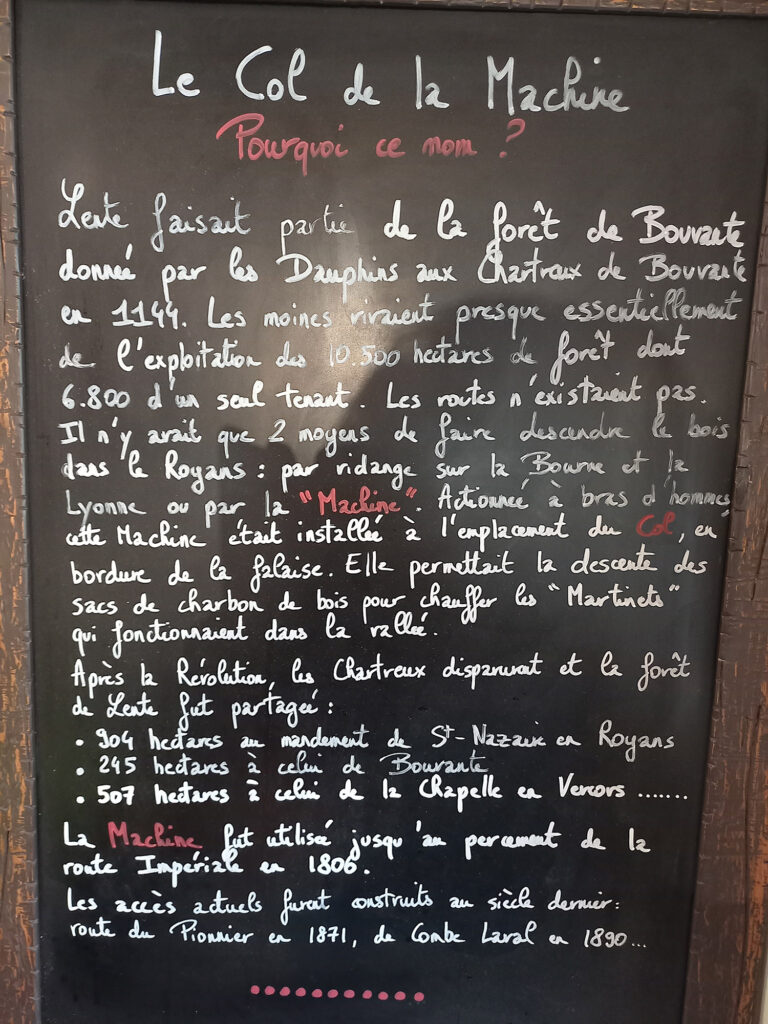 Le Col de la Machine
Pourquoi ce nom ?
Lente faisait partie de la forêt de Bouvante
donnée par les Dauphins aux Chartreux de Bouvante
en 1144. Les moines vivaient presque essentiellement
de l'exploitation des 10.500 hectares de forêt dont
6.800 d'un seul tenant. Les routes n'existaient pas.
Il n'y avait que 2 moyens de faire descendre le bois
dans le Royans : par ridange sur la Bourne et la
Lyonne ou par la "Machine". Actionnée à bras d'hommes,
cette Machine était installée à l'emplacement du Col, en
bordure de la falaise. Elle permettait la descente des
sacs de charbon de bois pour chauffer les "Martinets"
qui fonctionnaient dans la vallée.
Après la Révolution, les Chartreux disparurent et la forêt
de Lente fut partagée :
• 904 hectares au mandement de St-Nazaire en Royans
• 245 hectares à celui de Bouvante
• 507 hectares à celui de la Chapelle en Vercors .......
La Machine fut utilisé jusqu'au percement de la
route Impériale en 1806.
Les accès actuels furent construits au siècle dernier :
route du Pionnier en 1871, de Combe Laval en 1890...